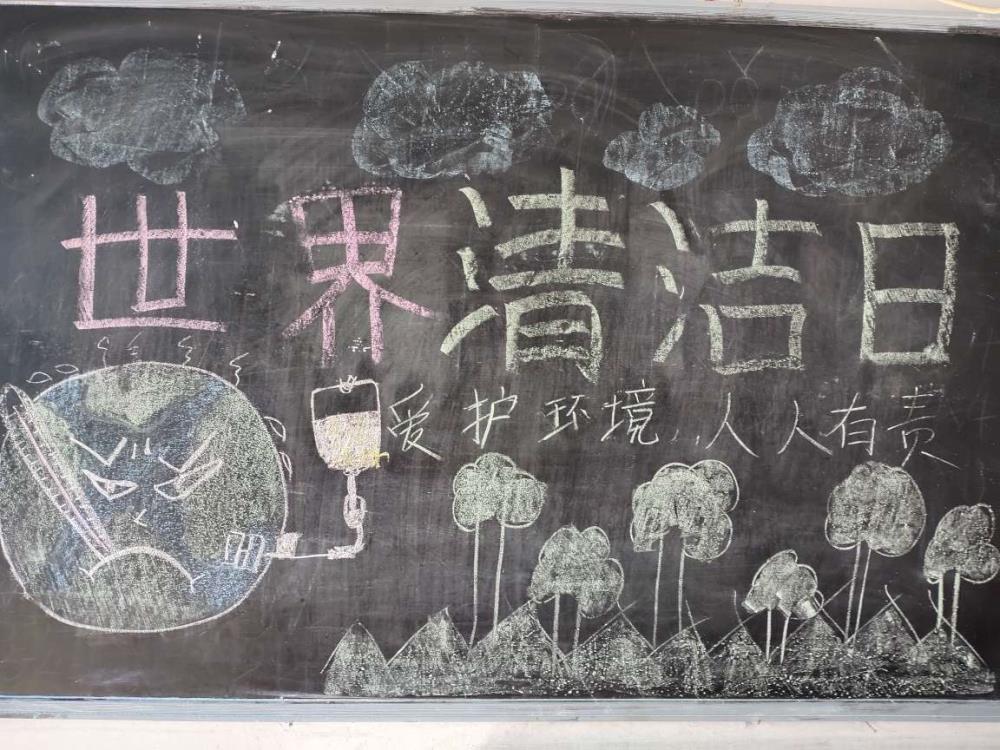 世界清洁日
爱护环境,人人有责